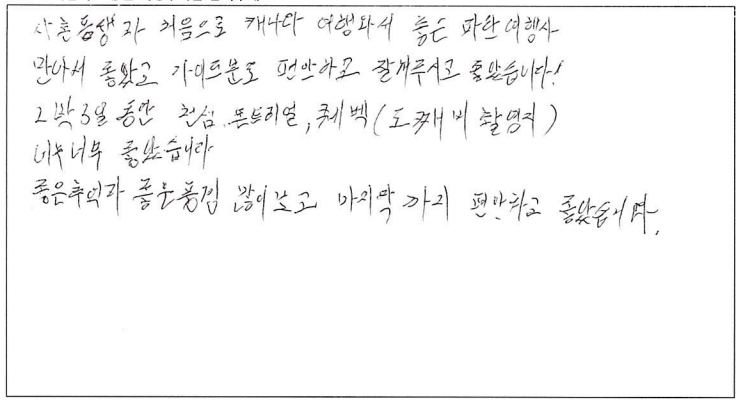 사촌동생과 처음으로 캐나다 여행와서 좋은 파란여행사
만나서 좋았고 가이드분도 편안하고 잘해주시고 좋았습니다!
2박3일 동안 천섬, 몬트리얼, 퀘벡 (도깨비 촬영지)
너무너무 좋았습니다
좋은추억과 좋은풍경 많이보고 마지막까지 편안하고 좋았습니다.